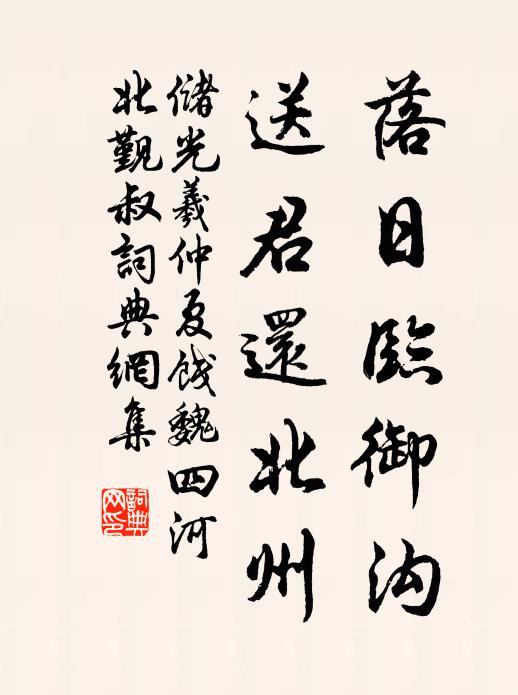 落日臨御沟
送君還北州
儲光羲仲夏餞魏四河
北觐叔詞典網集
詞典
网印